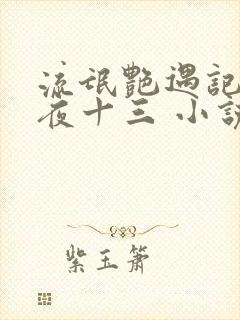 流氓艷遇記
夜十三 小説
紫玉簫